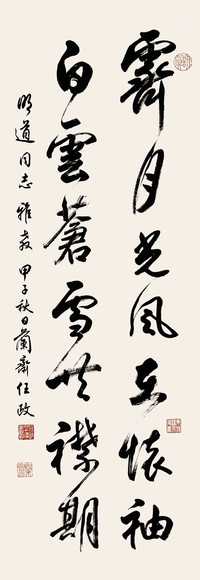 霽月光風在懷袖
白雲蒼雪共襟期
明道同志雅教 甲子秋日蘭齋任政